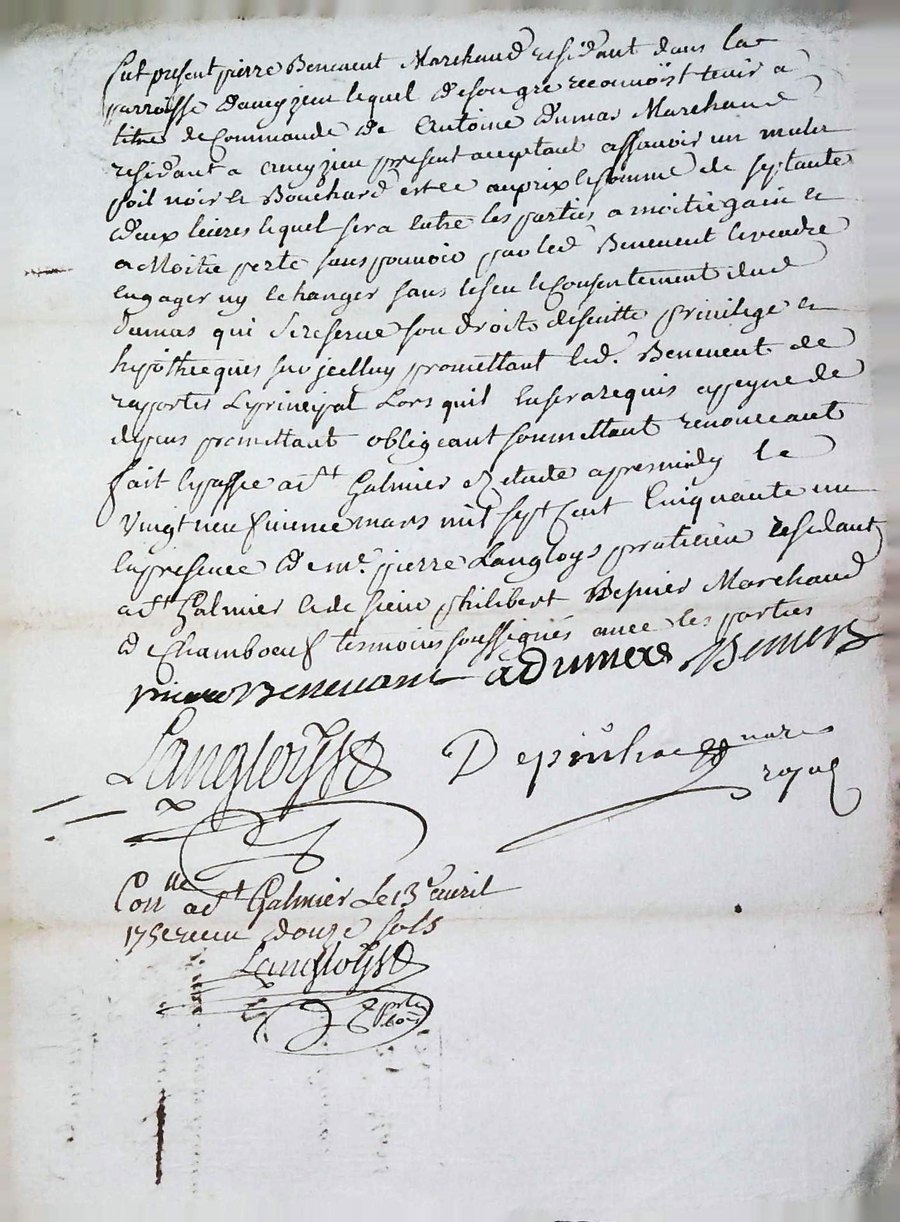 fut present pierre Beneuent Marchand residant dans la
parroisse daueyzieu lequel de son gre reconnoist tenir a
titre de Commande de Antoine Dumas Marchand
residant a aueyzieu present acceptant assauoir un mulet
poil noir et Bouchard estee au prix et somme de septante
deux liures lequel sera entre les parties a moitié gain et
a Moitie perte sans pouuoir par led Beneuent le vendre
engager ny echanger sans le sceu et Consentement dud
Dumas qui se reserue son droits de suitte priuilege et
hypotheques sur jcelluy promettant led. Beneuent de
raporter le principal Lors quil en sera requis a peyne de
depens promettant obligeant soumettant renonceant
fait et passe a St Galmier et etude apres midy le
vingt neufuieme mars mil sept cent Cinquante un
en presence de me. pierre Langloys praticien residant
a St Galmier et de sieur philibert Besnier Marchand
de Chamboeuf tesmoins soussignés auec les parties
pierre Beneuant adumas Besnier
Langloys Depiuhac nore
royal
Conlle a St Galmier Le 13e auril
1751 recu douze sols
Langloys